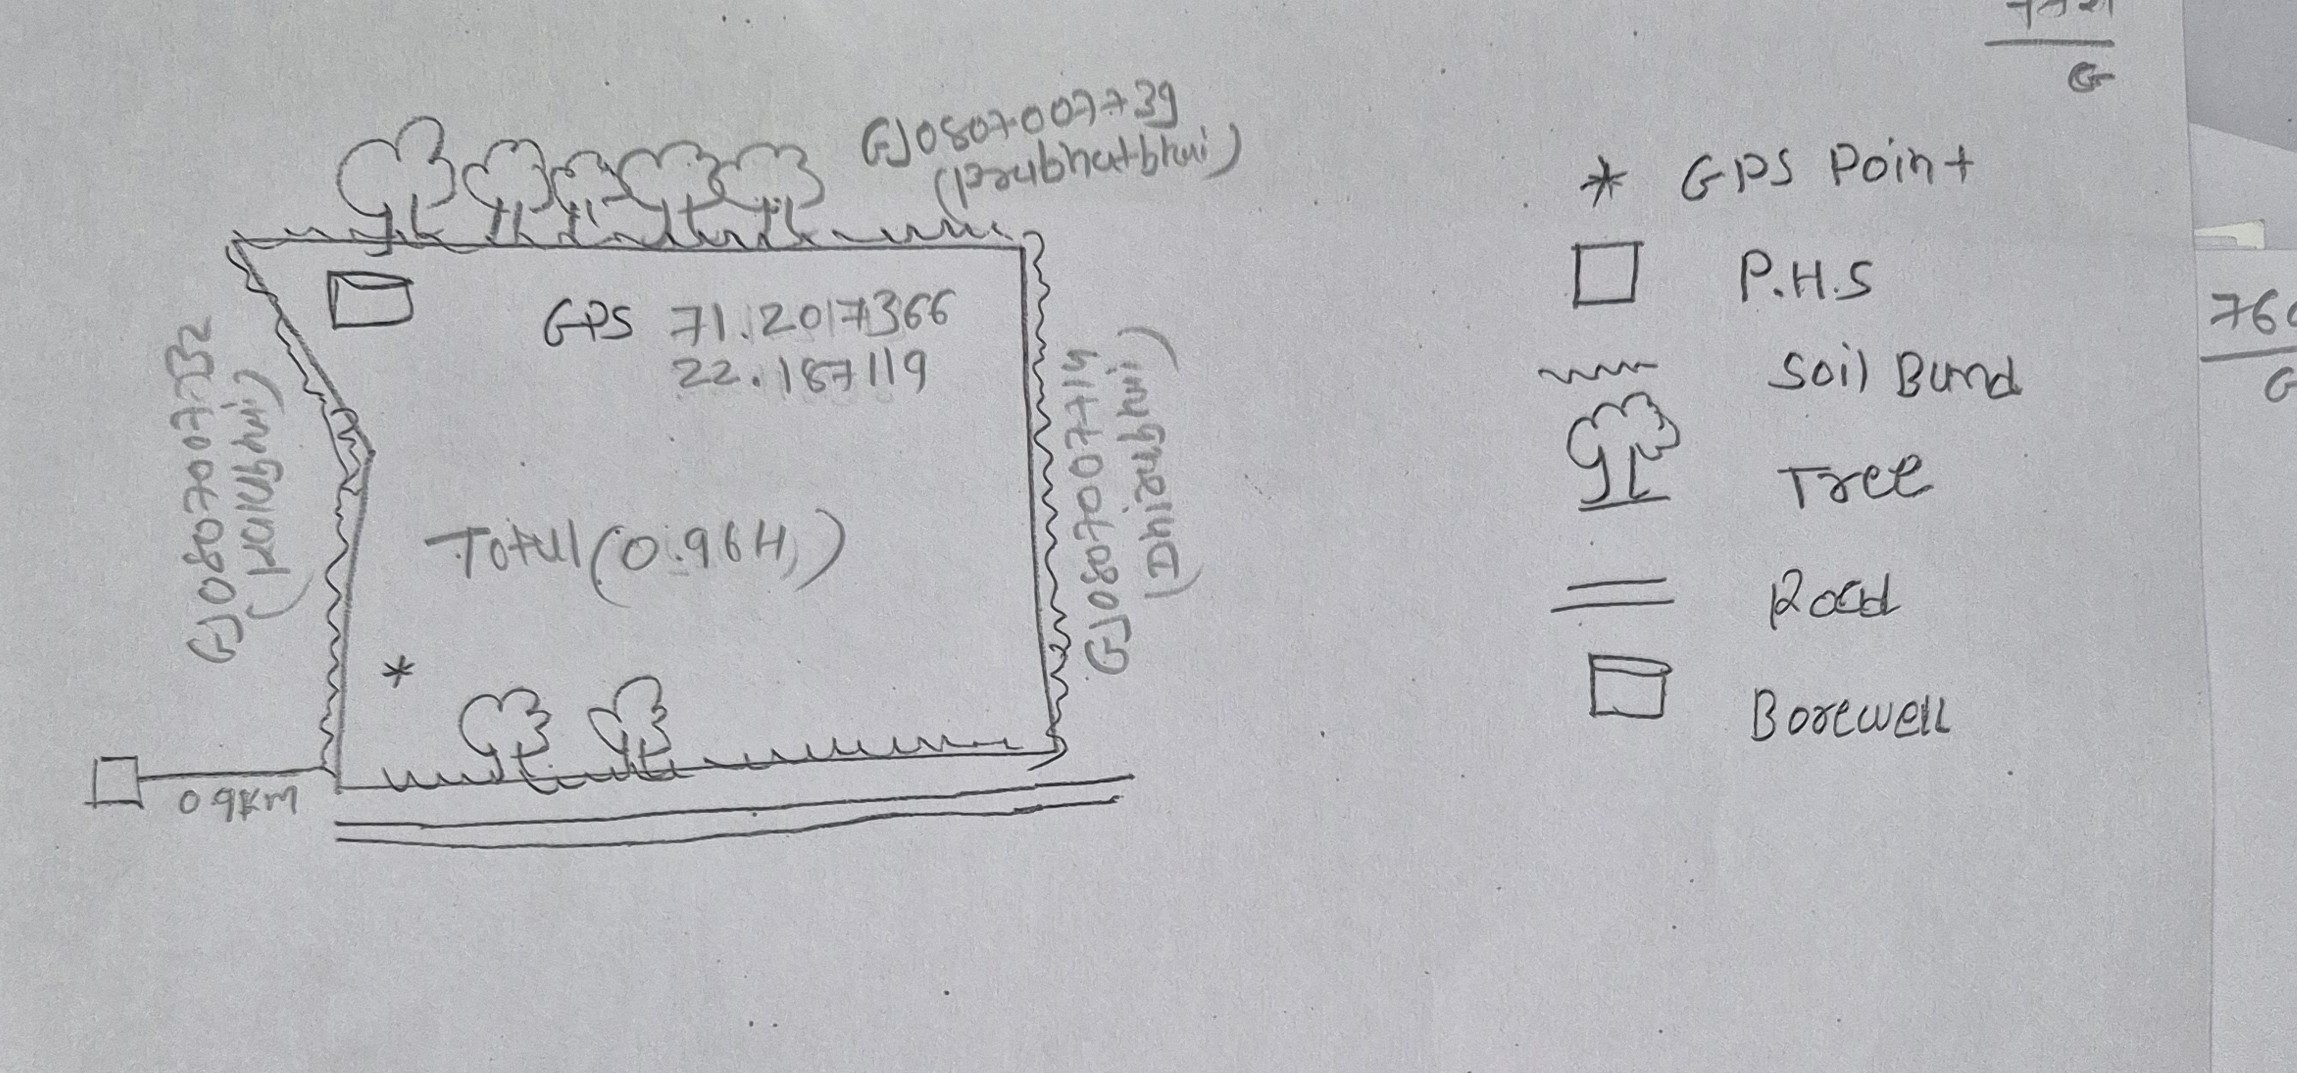 GJ0807007739
(Prabhatbhai)
GPS 71.2017366
22.187119
GJ0807007732
(Kalubhai)
GJ0807007714
(Dhirubhai)
Total (0.96H)
0.9KM
GPS Point
P.H.S
Soil Bund
Tree
Road
Borewell
G
760
G